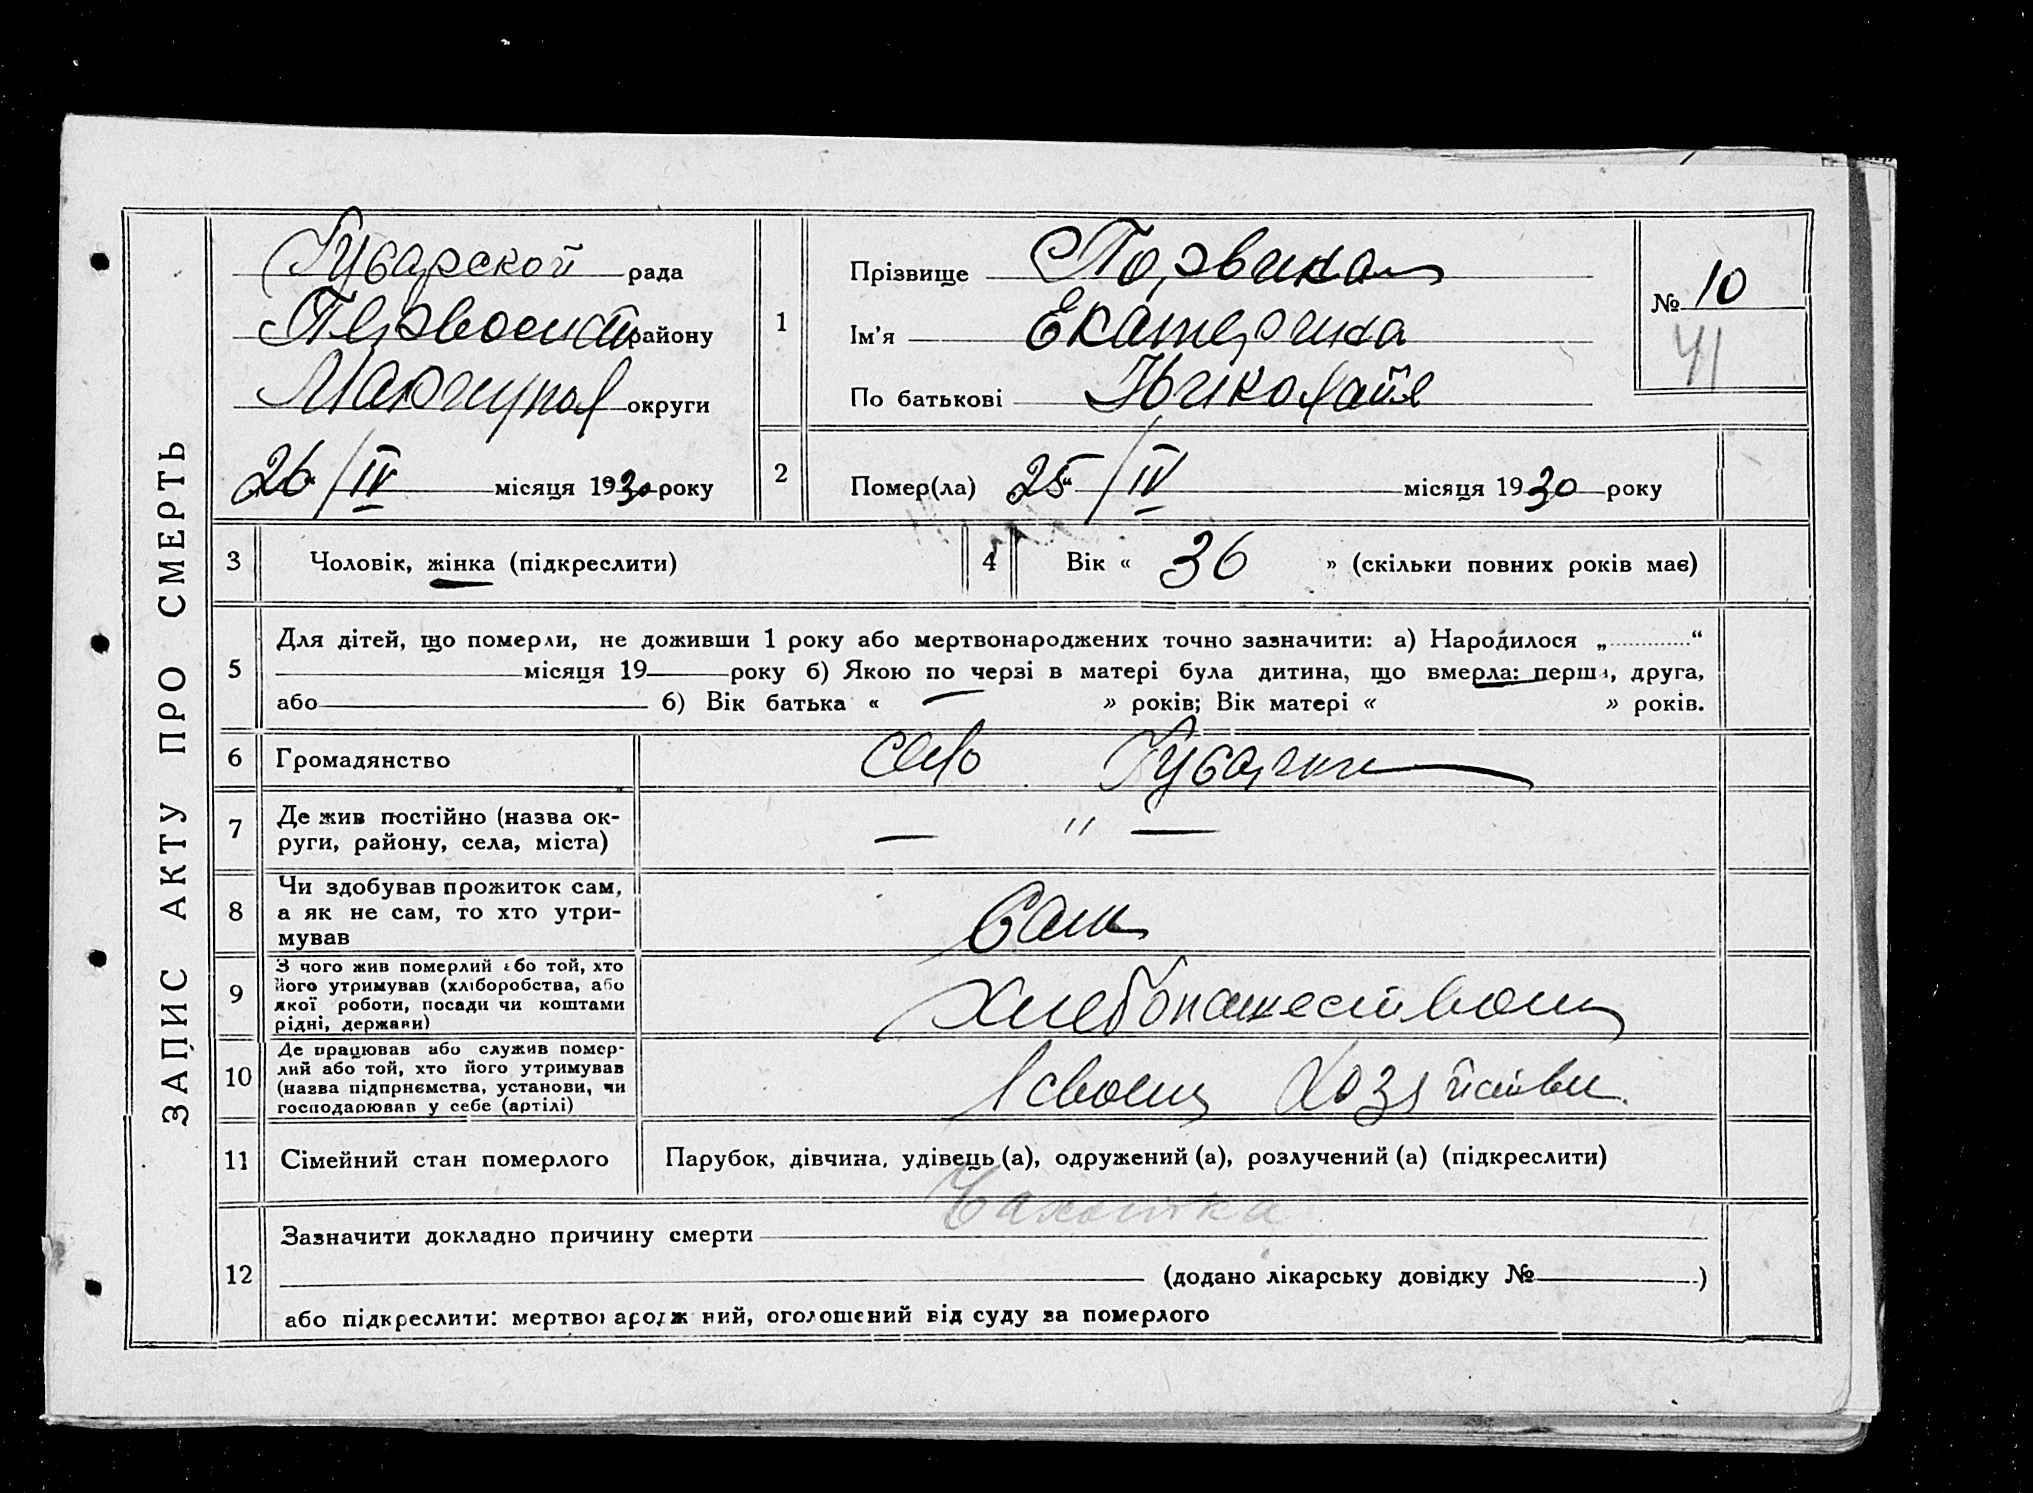 ЗАПИС АКТУ ПРО СМЕРТЬ
Губарской рада
району
Мариупол округи
26/IV місяця 1930 року
1
Прізвище
Ім'я Екатерина
По батькові Николайя
№ 10
41
2
Помер(ла) 25/IV місяця 1930 року
3 Чоловік, жінка (підкреслити)
4 Вік « 36 » (скільки повних років має)
5
Для дітей, що померли, не доживши 1 року або мертвонароджених точно зазначити: а) Народилося „ “
місяця 19 року б) Якою по черзі в матері була дитина, що вмерла: перша, друга,
або б) Вік батька « — » років; Вік матері « » років.
6 Громадянство село
7 Де жив постійно (назва ок-
руги, району, села, міста) — " —
8 Чи здобував прожиток сам,
а як не сам, то хто утри-
мував
Сам
9 З чого жив померлий або той, хто
його утримував (хліборобства, або
якої роботи, посади чи коштами
рідні, держави)
Хлебопашеством
10 Де працював або служив помер-
лий або той, хто його утримував
(назва підприємства, установи, чи
господарював у себе (артілі)
своем Хозяйстве
11 Сімейний стан померлого Парубок, дівчина, удівець (а), одружений (а), розлучений (а) (підкреслити)
12
Чахотка
Зазначити докладно причину смерти
(додано лікарську довідку № )
або підкреслити: мертвонароджений, оголошений від суду за померлого